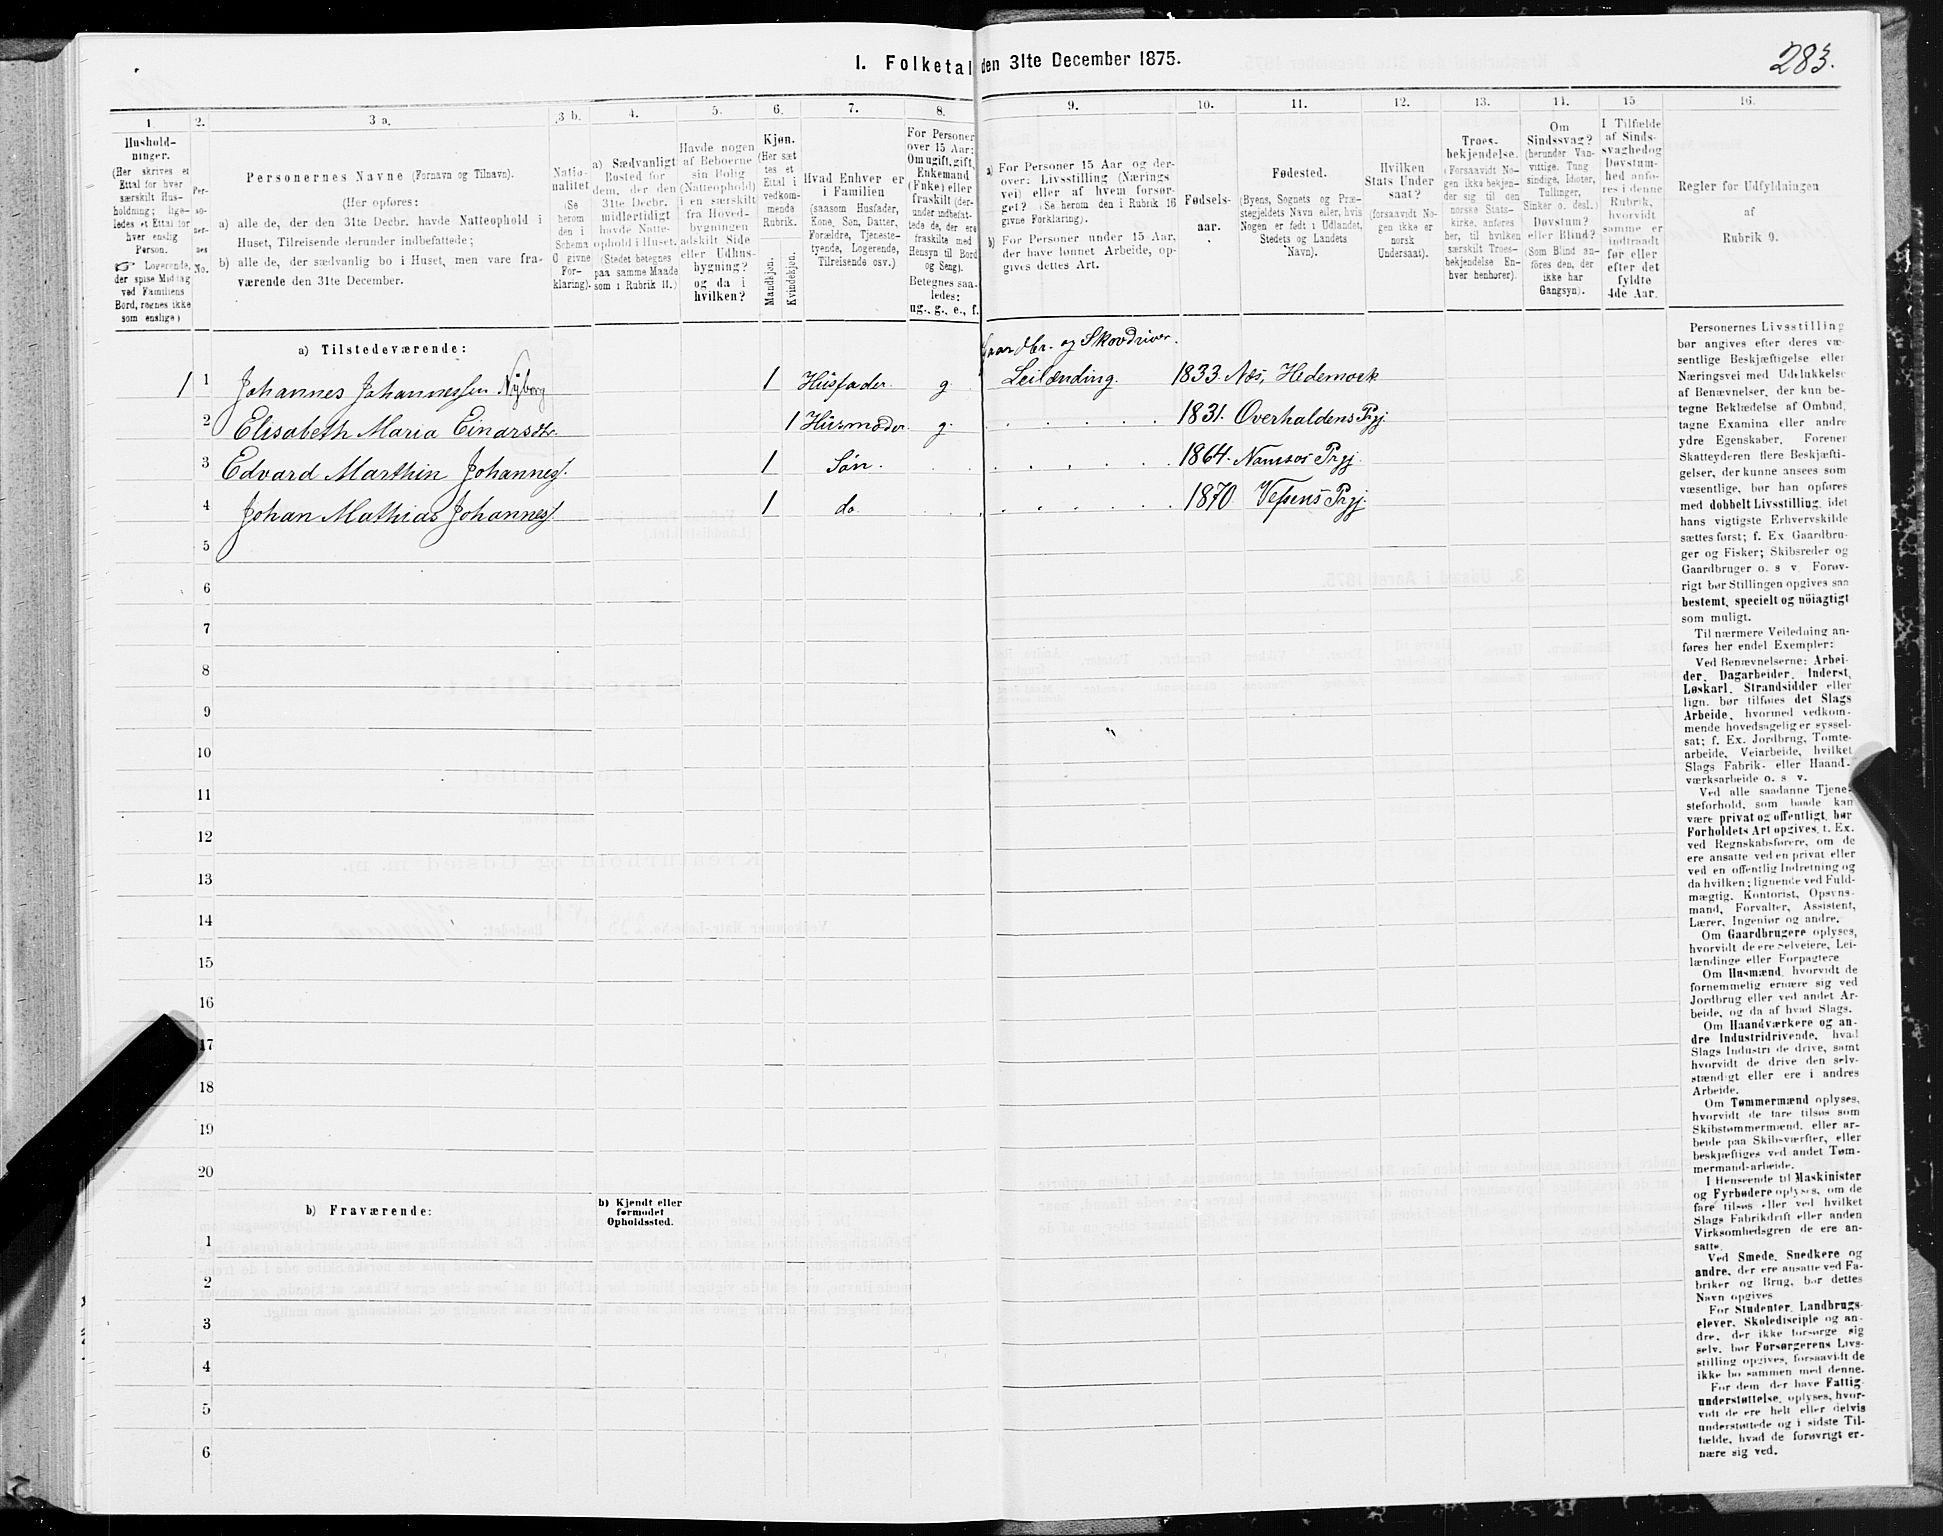 283.
I. Folketal den 31te December 1875.
1. 2. 3 a. 3 b. 4. 5. 6. 7. 8. 9. 10. 11. 12. 13. 14. 15 16.
Hushold-
ninger.
(Her skrives et
Ettal for hver
særskilt Hus-
holdning; lige-
ledes et Ettal for
hver enslig
Person.
☞ Logerende,
der spise Middag
ved Familiens
Bord, regnes ikke
som enslige)
Per-
so-
ner-
nes
No.
Personernes Navne (Fornavn og Tilnavn).
(Her opføres:
a) alle de, der den 31te Decbr. havde Natteophold i
Huset, Tilreisende derunder indbefattede;
b) alle de, der sædvanlig bo i Huset, men vare fra-
værende den 31te December.
Natio-
nalitet
(Se
herom
den i
Schema
C givne
For-
klaring).
a) Sædvanligt
Bosted for
dem, der den
31te Decbr.
midlertidigt
havde Natte-
ophold i Huset.
(Stedet betegnes
paa samme Maade
som i Rubrik 11.)
Havde nogen
af Beboerne
sin Bolig
(Natteophold)
i en særskilt
fra Hoved-
bygningen
adskilt Side
eller Udhus-
bygning?
og da i
hvilken?
Kjøn.
(Her sæt
tes et
Ettal i
vedkom-
mende
Rubrik.
Mandkjøn.
Kvindekjøn.
Hvad Enhver er
i Familien
(saasom Husfader,
Kone, Søn, Datter,
Forældre, Tjeneste-
tyende, Logerende,
Tilreisende osv.)
For Personer
over 15 Aar:
Om ugift, gift,
Enkemand
(Enke) eller
fraskilt (der-
under indbefat-
tede de, der ere
fraskilte med
Hensyn til Bord
og Seng).
Betegnes saa-
ledes:
ug., g., e., f.
a) For Personer 15 Aar og der-
over: Livsstilling (Nærings
vei) eller af hvem forsør-
get? (Se herom den i Rubrik 16
givne Forklaring).
b) For Personer under 15 Aar,
der have lønnet Arbeide, op-
gives dettes Art.
Fødsels-
aar.
Fødested.
(Byens, Sognets og Præ-
stegjeldets Navn eller, hvis
Nogen er født i Udlandet,
Stedets og Landets
Navn).
Hvilken
Stats Under
saat?
(forsaavidt No-
gen ikke er
norsk
Undersaat).
Troes-
bekjendelse.
(Forsaavidt No-
gen ikke bekjen-
der sig til den
norske Stats-
kirke, anføres
her, til hvilken
særskilt Troes-
bekjendelse En-
hver henhører).
Om
Sindssvag?
(herunder Van-
vittige, Tung
sindige, Idioter,
Tullinger,
Sinker o. desl.)
Døvstum?
eller Blind?
(Som Blind an-
føres den, der
ikke har
Gangsyn).
I Tilfælde
af Sinds-
svaghed og
Døvstum-
hed anfø-
res i denne
Rubrik,
hvorvidt
samme er
indtraadt
før eller
efter det
fyldte
4de Aar.
Regler for Udfyldningen
af
Rubrik 9.
a) Tilstedeværende:
Gaardbr. og Skovdriver.
1 1 Johannes Johannessen Nyborg 1 Husfader. g Leilænding. 1833. Næs, Hedemark
2 Elisabeth Maria Einarsdtr. 1 Husmoder. g. 1831. Overhaldens Prgj.
3 Edvard Marthin Johannes. 1 Søn. 1864. Namsos Prgj.
4 Johan Mathias Johannes. 1 do. 1870. Vefsens Prgj.
5
6
7
8
9
10
11
12
13
14
15
16
17
18
19
20
b) Fraværende:
b) Kjendt eller
formodet
Opholdssted.
1
2
3
4
5
6
Personernes Livsstilling
bør angives efter deres væ-
sentlige Beskjæftigelse eller
Næringsvei med Udelukkelse
af Benævnelser, der kun be-
tegne Beklædelse af Ombud,
tagne Examina eller andre
ydre Egenskaber. Forener
Skatteyderen flere Beskjæfti-
gelser, der kunne ansees som
væsentlige, bør han opføres
med dobbelt Livsstilling, idet
hans vigtigste Erhvervskilde
sættes først; f. Ex Gaardbru-
ger og Fisker; Skibsreder og
Gaardbruger o. s v. Forøv-
rigt bør Stillingen opgives saa
bestemt, specielt og nöiagtigt
som muligt.
Til nærmere Veiledning an-
føres her endel Exempler:
Ved Benævnelserne: Arbei-
der, Dagarbeider, Inderst,
Løskarl, Strandsidder eller
lign. bør tilføies det Slags
Arbeide, hvormed vedkom-
mende hovedsagelig er syssel-
sat; f. Ex. Jordbrug, Tomte-
arbeide, Veiarbeide, hvilket
Slags Fabrik- eller Haand-
værksarbeide o. s v.
Ved alle saadanne Tjene-
steforhold, som baade kan
være privat og offentligt, bør
Forholdets Art opgives, t. Ex.
ved Regnskabsførere, om de
ere ansatte ved en privat eller
ved en offentlig Indretning og
da hvilken; lignende ved Fuld-
mægtig, Kontorist, Opsyns-
mand, Forvalter, Assistent,
Lærer, Ingeniør og andre.
Om Gaardbrugere oplyses,
hvorvidt de ere Selveiere, Lei-
lændinge eller Forpagtere
Om Husmænd, hvorvidt de
fornemmelig ernære sig ved
Jordbrug eller ved andet Ar-
beide, og da af hvad Slags.
Om Haandværkere og an-
dre Industridrivende, hvad
Slags Industri de drive, samt
hvorvidt de drive den selv-
stændigt eller ere i andres
Arbeide.
Om Tømmermænd oplyses,
hvorvidt de fare tilsøs som
Skibstømmermænd, eller ar-
beide paa Skibsværfter, eller
beskjæftiges ved andet Tøm-
mermand-arbeide.
I Henseende til Maskinister
og Fyrbødere oplyses, om de
fare tilsøs eller ved hvilket
Slags Fabrikdrift eller anden
Virksomhedsgren de ere an-
satte.
Ved Smede, Snedkere og
andre, der ere ansatte ved Fa-
briker og Brug, bør dettes
Navn opgives
For Studenter, Landbrugs-
elever, Skoledisciple og an-
dre, der ikke forsørge sig
selv, bør Forsørgerens Livs-
stilling opgives, forsaavidt de
ikke bo sammen med denne.
For dem, der have Fattig-
understøttelse, oplyses, hvor-
vidt de ere helt eller delvis
understøttede og i sidste Til-
fælde, hvad de forøvrigt er-
nære sig ved.